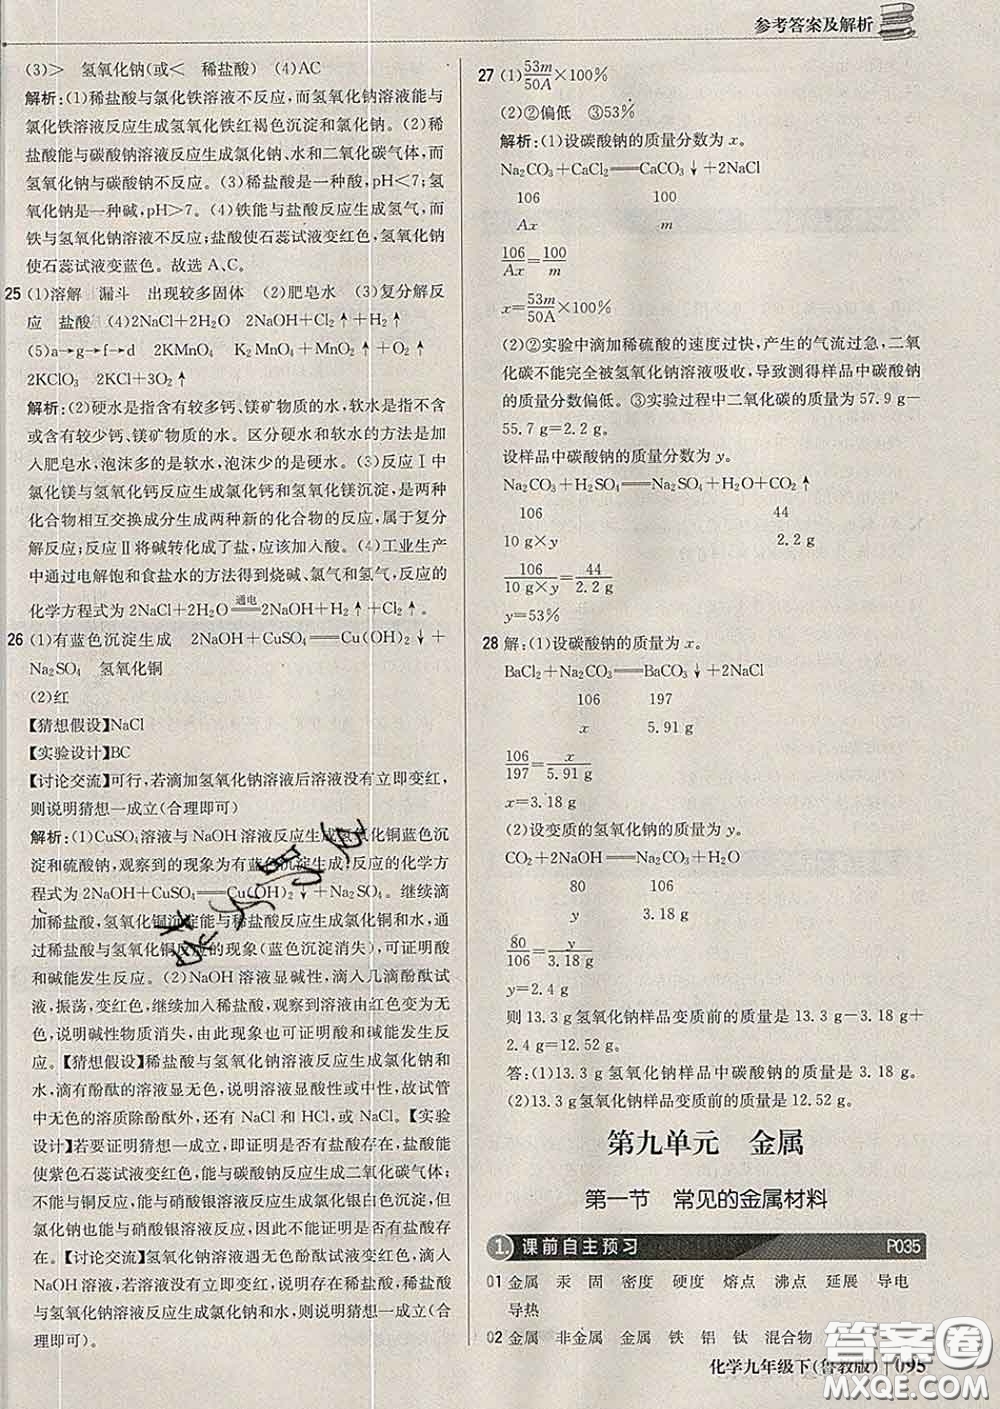 参考答案及解析
(3)> 氢氧化钠(或< 稀盐酸) (4)AC
解析:(1)稀盐酸与氯化铁溶液不反应,而氢氧化钠溶液能与
氯化铁溶液反应生成氢氧化铁红褐色沉淀和氯化钠。(2)稀
盐酸能与碳酸钠溶液反应生成氯化钠、水和二氧化碳气体,而
氢氧化钠与碳酸钠不反应。(3)稀盐酸是一种酸,pH<7;氢
氧化钠是一种碱,pH>7。(4)铁能与盐酸反应生成氢气,而
铁与氢氧化钠不反应;盐酸使石蕊试液变红色,氢氧化钠
使石蕊试液变蓝色。故选 A、C。
25 (1)溶解 漏斗 出现较多固体 (2)肥皂水 (3)复分解反
应 盐酸 (4)2NaCl+2H₂O 2NaOH+Cl₂↑+H₂↑
(5)a→g→f→d 2KMnO₄ K₂MnO₄+MnO₂+O₂↑
2KClO₃ 2KCl+3O₂↑
解析:(2)硬水是指含有较多钙、镁矿物质的水,软水是指不含
或含有较少钙、镁矿物质的水。区分硬水和软水的方法是加
入肥皂水,泡沫多的是软水,泡沫少的是硬水。(3)反应Ⅰ中
氯化镁与氢氧化钙反应生成氯化钙和氢氧化镁沉淀,是两种
化合物相互交换成分生成两种新的化合物的反应,属于复分
解反应;反应Ⅱ将碱转化成了盐,应该加入酸。(4)工业生产
中通过电解饱和食盐水的方法得到烧碱、氯气和氢气,反应的
化学方程式为 2NaCl+2H₂O\xlongequal{通电}2NaOH+H₂↑+Cl₂↑。
26 (1)有蓝色沉淀生成 2NaOH+CuSO₄══Cu(OH)₂↓+
Na₂SO₄ 氢氧化铜
(2)红
【猜想假设】NaCl
【实验设计】BC
【讨论交流】可行,若滴加氢氧化钠溶液后溶液没有立即变红,
则说明猜想一成立(合理即可)
解析:(1)CuSO₄溶液与 NaOH溶液反应生成氢氧化铜蓝色沉
淀和硫酸钠,观察到的现象为有蓝色沉淀生成;反应的化学方
程式为 2NaOH+CuSO₄══Cu(OH)₂↓+Na₂SO₄。继续滴
加稀盐酸,氢氧化铜沉淀能与稀盐酸反应生成氯化铜和水,通
过稀硫酸与氢氧化铜反应的现象(蓝色沉淀消失),可证明酸
和碱能发生反应。(2)NaOH溶液显碱性,滴入几滴酚酞试
液,振荡,变红色,继续加入稀盐酸,观察到溶液由红色变为无
色,说明碱性物质消失,由此现象也可证明酸和碱能发生反
应。【猜想假设】稀盐酸与氢氧化钠溶液反应生成氯化钠和
水,滴有酚酞的溶液显无色,说明溶液显酸性或中性,故试管
中无色的溶质除酚酞外,还有 NaCl 和 HCl,或 NaCl。【实验
设计】若要证明猜想一成立,即证明是否有盐酸存在,盐酸能
使紫色石蕊试液变红色,能与碳酸钠反应生成二氧化碳气体;
不能与铜反应,能与硝酸银溶液反应生成氯化银白色沉淀,但
氯化钠也能与硝酸银溶液反应,因此不能证明是否有盐酸存
在。【讨论交流】氢氧化钠溶液遇无色酚酞溶液变红色,滴入
NaOH溶液后溶液没有立即变红,则说明有稀盐酸,稀盐酸
与氢氧化钠溶液反应生成氯化钠和水,则说明猜想一成立(合
理即可)。
27 (1)53m/50A×100%
(2)②偏低 ③53%
解析:(1)设碳酸钠的质量分数为 x。
Na₂CO₃+CaCl₂══CaCO₃↓+2NaCl
106 100
Ax m
106/Ax=100/m
x=53m/50A×100%
(2)②实验中滴加稀硫酸的速度过快,产生的气流过急,二氧
化碳不能完全被氢氧化钠溶液吸收,导致测得样品中碳酸钠
的质量分数偏低。③实验过程中二氧化碳的质量为 57.9 g-
55.7 g=2.2 g。
设样品中碳酸钠的质量分数为 y。
Na₂CO₃+H₂SO₄══Na₂SO₄+H₂O+CO₂↑
106 44
10 g×y 2.2 g
106/10 g×y=44/2.2 g
y=53%
28 解:(1)设碳酸钠的质量为 x。
BaCl₂+Na₂CO₃══BaCO₃↓+2NaCl
106 197
x 5.91 g
106/197=x/5.91 g
x=3.18 g
(2)设变质的氢氧化钠的质量为 y。
CO₂+2NaOH══Na₂CO₃+H₂O
80 106
y 3.18 g
80/106=y/3.18 g
y=2.4 g
则 13.3 g氢氧化钠样品变质前的质量是 13.3 g-3.18 g+
2.4 g=12.52 g。
答:(1)13.3 g氢氧化钠样品中碳酸钠的质量是 3.18 g。
(2)13.3 g氢氧化钠样品变质前的质量是 12.52 g。
第九单元 金属
第一节 常见的金属材料
1. 课前自主预习 P035
01 金属 汞 固 密度 硬度 熔点 沸点 延展 导电
导热
02 金属 非金属 金属 铁 铝 钛 混合物
化学九年级下(鲁教版) 095
答案圈
MXQE.COM